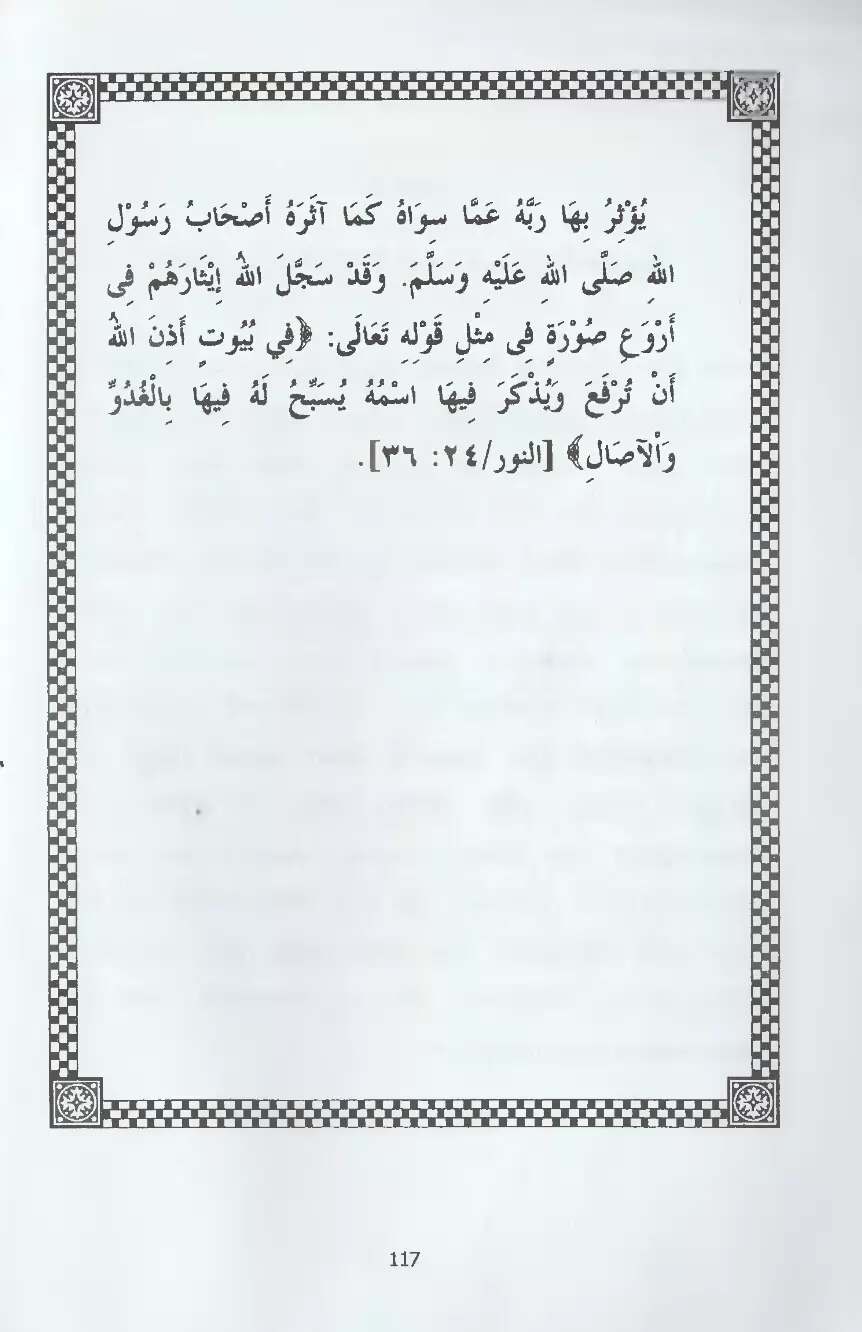 يُؤْثِرُ بِهَا رَبَّهُ عَمَّا سِوَاهُ كَمَا آثَرَهُ أَصْحَابُ رَسُوْلِ
اللهِ صَلَّى اللهِ عَلَيْهِ وَسَلَّمَ. وَقَدْ سَجَّلَ اللهُ إِيْثَارَهُمْ فِى
أَرْوَعِ صُوْرَةٍ فِى مِثْلِ قَوْلِهِ تَعَالَى: ﴿فِي بُيُوتٍ أَذِنَ اللهُ
أَنْ تُرْفَعَ وَيُذْكَرَ فِيهَا اسْمُهُ يُسَبِّحُ لَهُ فِيهَا بِالْغُدُوِّ
وَالْآصَالِ﴾ [النور/٢٤: ٣٦].
117